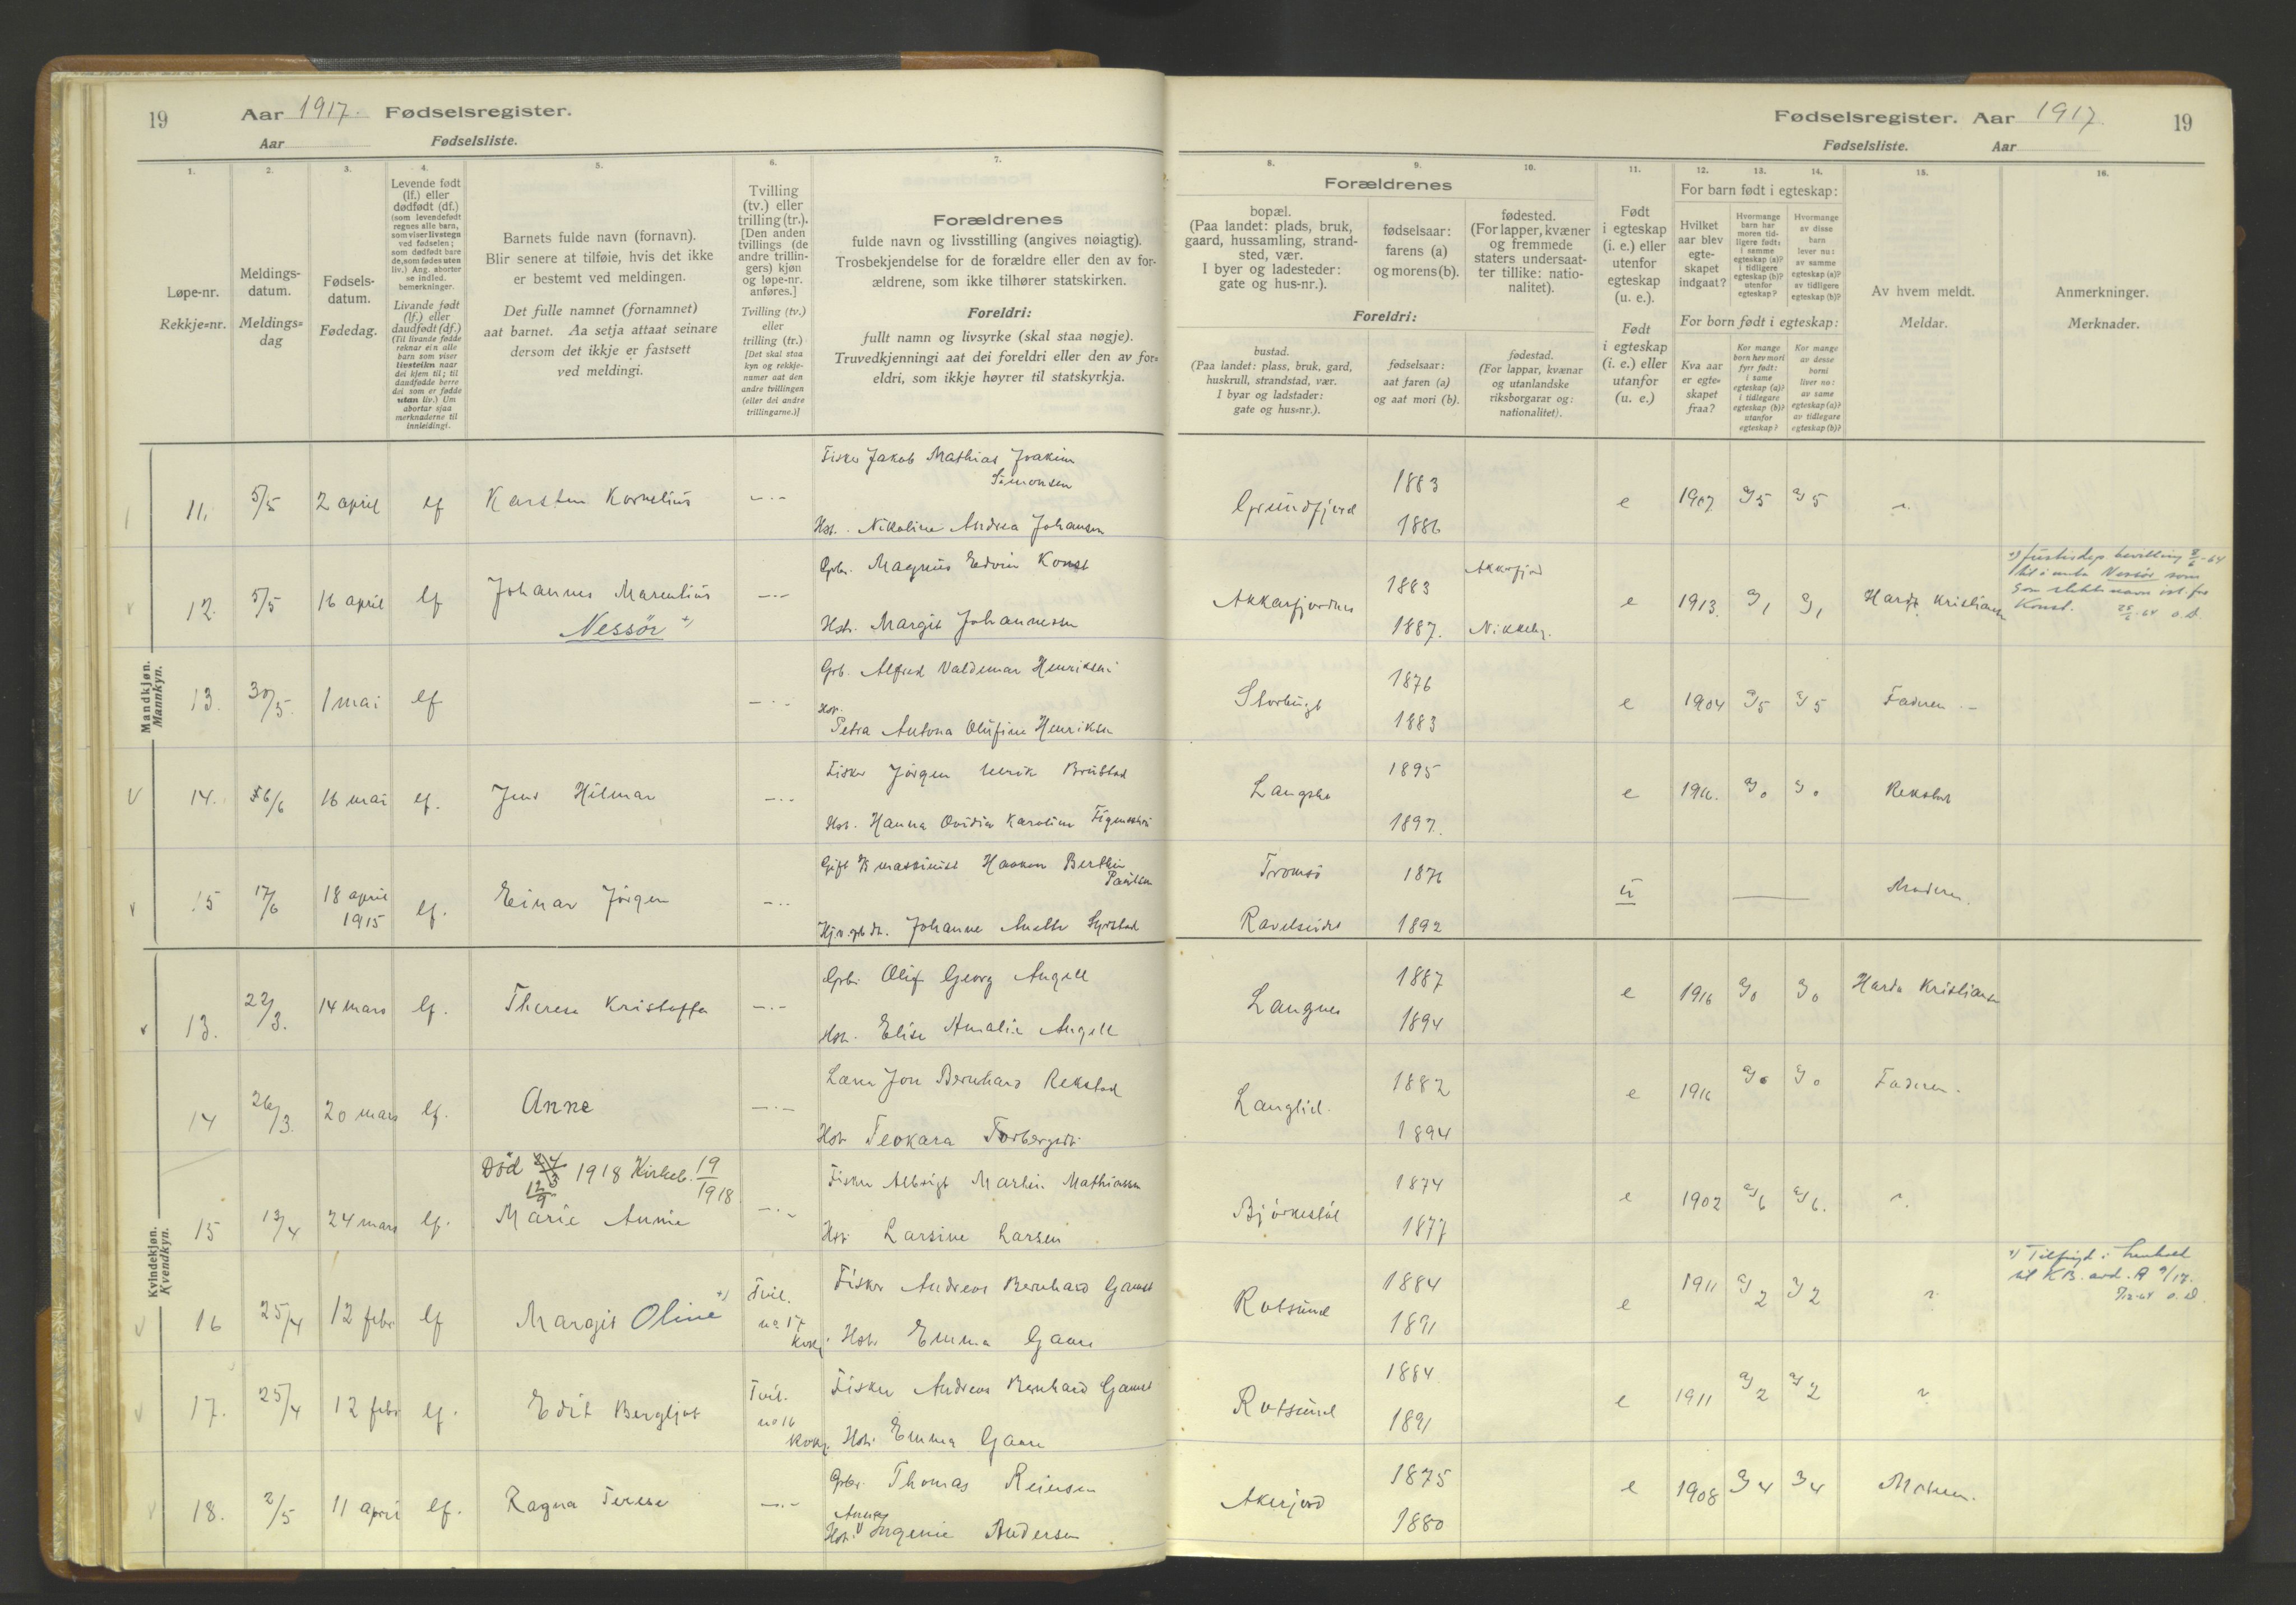 19
Aar 1917. Fødselsregister.
Aar Fødselsliste.
1.
2.
3.
4.
5.
6.
7.
Løpe-nr.
Rekkje=nr.
Meldings-
datum.
Meldings=
dag
Fødsels-
datum.
Fødedag.
Levende født
(lf.) eller
dødfødt (df.)
(som levendefødt
regnes alle barn,
som viser livstegn
ved fødselen;
som dødfødt bare
de, som fødes uten
liv.) Ang. aborter
se indled.
bemerkninger.
Livande født
(lf.) eller
daudfødt (df.)
(Til livande fødde
reknar ein alle
barn som viser
livsteikn naar
dei kjem til; til
daudfødde berre
dei som er fødde
utan liv.) Um
abortar sjaa
merknaderne til
innleidingi.
Barnets fulde navn (fornavn).
Blir senere at tilføie, hvis det ikke
er bestemt ved meldingen.
Det fulle namnet (fornamnet)
aat barnet. Aa setja attaat seinare
dersom det ikkje er fastsett
ved meldingi.
Tvilling
(tv.) eller
trilling (tr.).
[Den anden
tvillings (de
andre trillin-
gers) kjøn
og løpe-nr.
anføres.]
Tvilling (tv.)
eller
trilling (tr.)
[Det skal staa
kyn og rekkje-
numer aat den
andre tvillingen
(eller dei andre
trillingarne.)]
Forældrenes
fulde navn og livsstilling (angives nøiagtig).
Trosbekjendelse for de forældre eller den av for-
ældrene, som ikke tilhører statskirken.
Foreldri:
fullt namn og livsyrke (skal staa nøgje).
Truvedkjenningi aat dei foreldri eller den av for=
eldri, som ikkje høyrer til statskyrkja.
Fødselsregister. Aar 1917. 19
Fødselsliste. Aar
8.
9.
10.
11.
12.
13.
14.
15.
16.
Forældrenes
bopæl.
(Paa landet: plads, bruk,
gaard, hussamling, strand-
sted, vær.
I byer og ladesteder:
gate og hus-nr.).
fødselsaar:
farens (a)
og morens (b).
fødested.
(For lapper, kvæner
og fremmede
staters undersaat-
ter tillike: natio-
nalitet).
Foreldri:
bustad.
(Paa landet: plass, bruk, gard,
huskrull, strandstad, vær.
I byar og ladstader:
gate og hus=nr.).
fødselsaar:
aat faren (a)
og aat mori (b).
fødestad.
(For lappar, kvænar
og utanlandske
riksborgarar og:
nationalitet).
Født
i egteskap
(i. e.) eller
utenfor
egteskap
(u. e.).
Født
i egteskap
(i. e.) eller
utanfor
(u. e.)
For barn født i egteskap:
Hvilket
aar blev
egte-
skapet
indgaat?
Hvormange
barn har
moren tid-
ligere født:
i samme
egteskap (a)?
i tidligere
egteskap (b)?
utenfor
egteskap?
Hvormange
av disse
barn
lever nu:
av samme
egteskap (a)?
av tidligere
egteskap (b)?
For born født i egteskap:
Kva aar
er egte=
skapet
fraa?
Kor mange
born hev mori
fyrr født:
i same
egteskap (a)?
i tidlegare
egteskap (b)?
utanfor
egteskap?
Kor mange
av desse
borni
liver no:
av same
egteskap (a)?
av tidlegare
egteskap (b)?
Av hvem meldt.
Meldar.
Anmerkninger.
Merknader.
Mandkjøn.
Mannkyn.
11. 5/5 2 april lf Karsten Kornelius —.— Fisker Jakob Mathias Joakim
Simonsen
Hst. Nikoline Andrea Johansen
Grundfjord 1883 1886 e 1907 a/5 a/5
12. 5/5 16 april lf Johannes Marentius —.— Gbr. Magnus Edvin Konst
Nessør +)
Hst. Margit Johannesen
Akkarfjordnes 1883 Akkarfjord
1887. Nikkeby. e 1913. a/1 a/1 Harda Kristiansen
Nessør som
Konst.
13. 30/5. 1 mai lf —.— Gbr. Alfred Valdemar Henriksen
Hst.
Petra Antona Olufine Henriksen
Storbugt 1876 1883 e 1904 a/5 a/5 Faderen.—
14. 6/6 16 mai lf. Jens Hilmar —.— Fisker Jørgen Ulrik
Hst. Hanna Ovidia Karoline
1895 1897. e 1916. a/0 a/0 Rekstad
15 17/6 18 april
1915 lf. Einar Jørgen —.— Gift maskinist Haakon Berthin
Paulsen
Johanne
Tromsø 1876
1892 u —— Moderen.
Kvindekjøn.
Kvendkyn.
13. 22/3. 14 mars lf. Therese Kristoffa —.— Gbr. Oluf Georg Angell
Hst. Elise Amalie Angell
Langnes 1887 1894 e 1916 a/0 a/0 Harda Kristiansen
14 26/3. 20 mars lf. Anne —.— Jon Bernhard Rekstad
Hst. Teokara
Langlid. 1882 1894 e 1916 a/0 a/0 Faderen.
Død 12/9 1918 Kirkeb. 19/1918
15 13/4 24 mars lf. Marie Annie —.— Fisker Albrigt Martin Mathiassen
Hst. Larsine Larsen
1874 1877 e 1902 a/6 a/6.
16 25/4 12 febr lf Margit Oline +) Tvil.
no 17
Kvkj. Fisker Andreas Bernhard Gamst
Hst. Emma Gaare
Rotsund 1884 1891 e 1911 a/2 a/2
+) Tilføyd i henhold
til K.B. avd. A
17. 25/4 12 febr lf. Edit Bergljot Tvil.
no 16
Kvkj. Fisker Andreas Bernhard Gamst
Hst. Emma Gaare
Rotsund 1884 1891 e 1911 a/2 a/2
18. 2/5 11 april lf. Ragna Terese —.— Gbr. Thomas Reiersen
Anna
Hst. Ingenie Andersen
1875 1880 e 1908 a/4 a/4